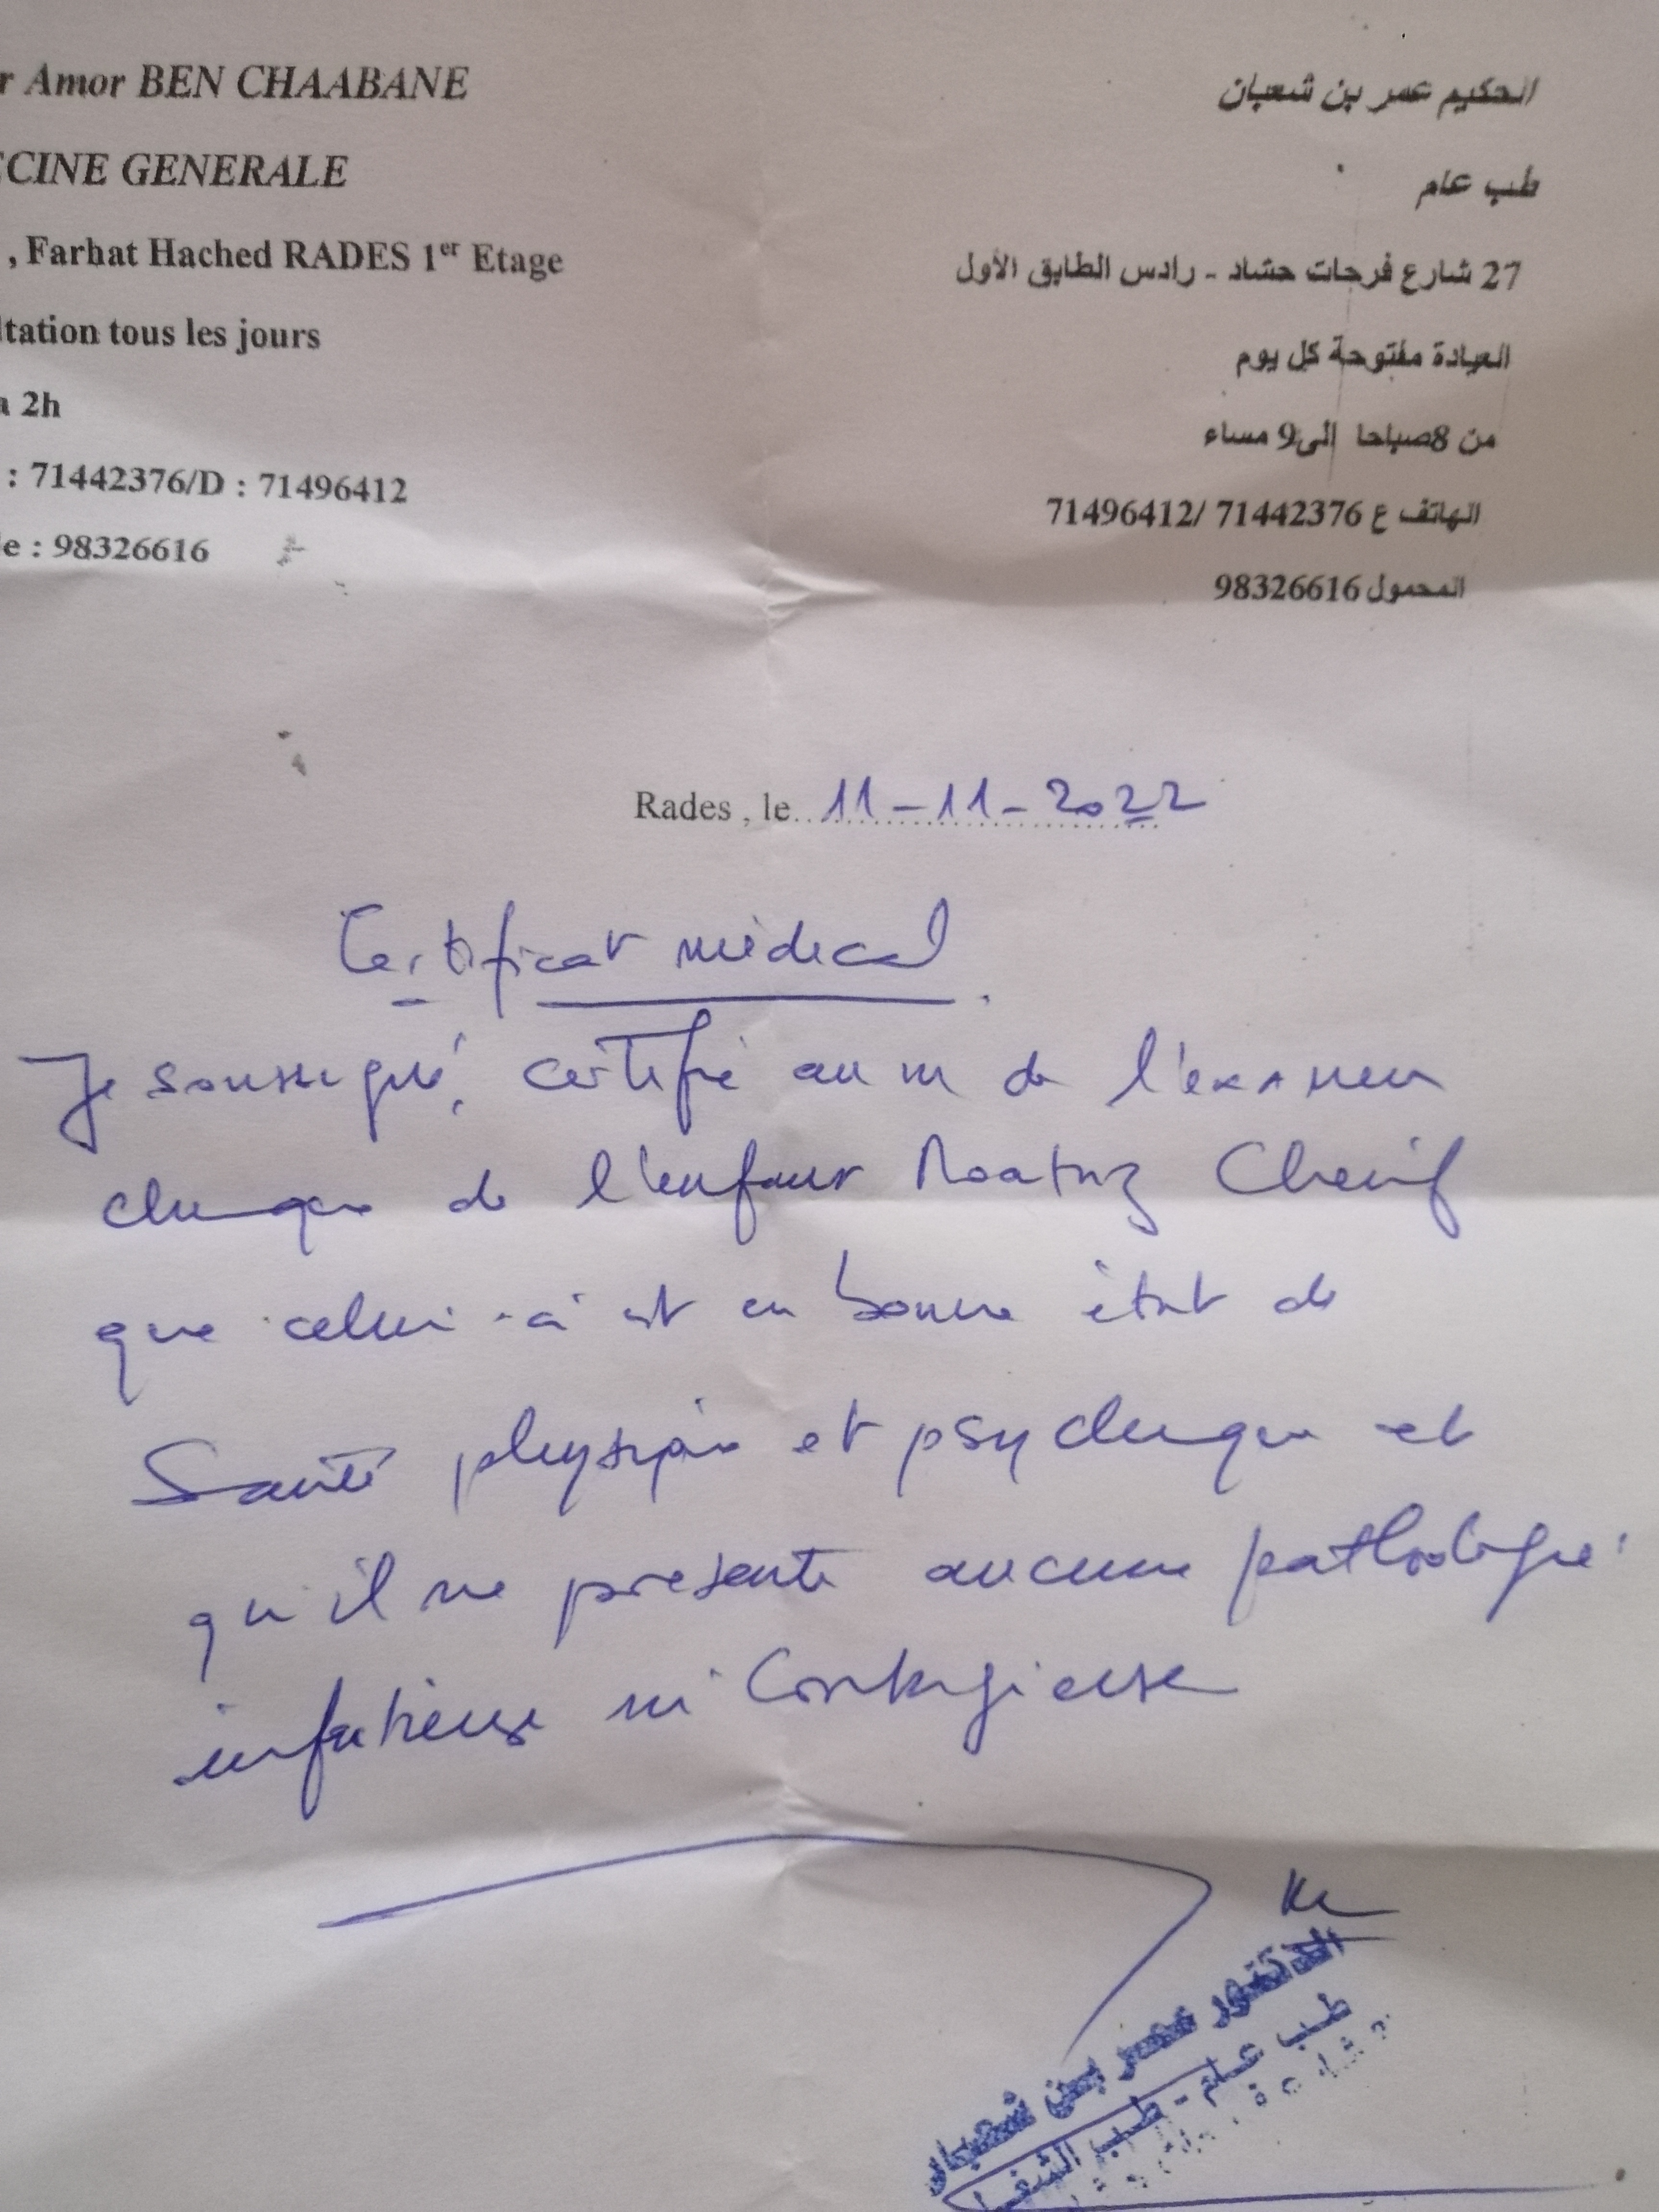 r Amor BEN CHAABANE
الحكيم عمر بن شعبان
ECINE GENERALE
طب عام
, Farhat Hached RADES 1er Etage
27 شارع فرحات حشاد - رادس الطابق الأول
ltation tous les jours
العيادة مفتوحة كل يوم
a 2h
من 8صباحا إلى9 مساء
: 71442376/D : 71496412
الهاتف ع 71442376 /71496412
le : 98326616
المحمول 98326616
Rades , le 11-11-2022
Certificat médical.
Je soussigné, certifie au de l'examen
clinique de l'enfant Cherif
que celui-ci est en bonne état de
Santé physique et psychique et
qu'il ne présente aucune pathologie
infectieuse ni Contagieuse
الدكتور عمر بن شعبان
طب عام - طب